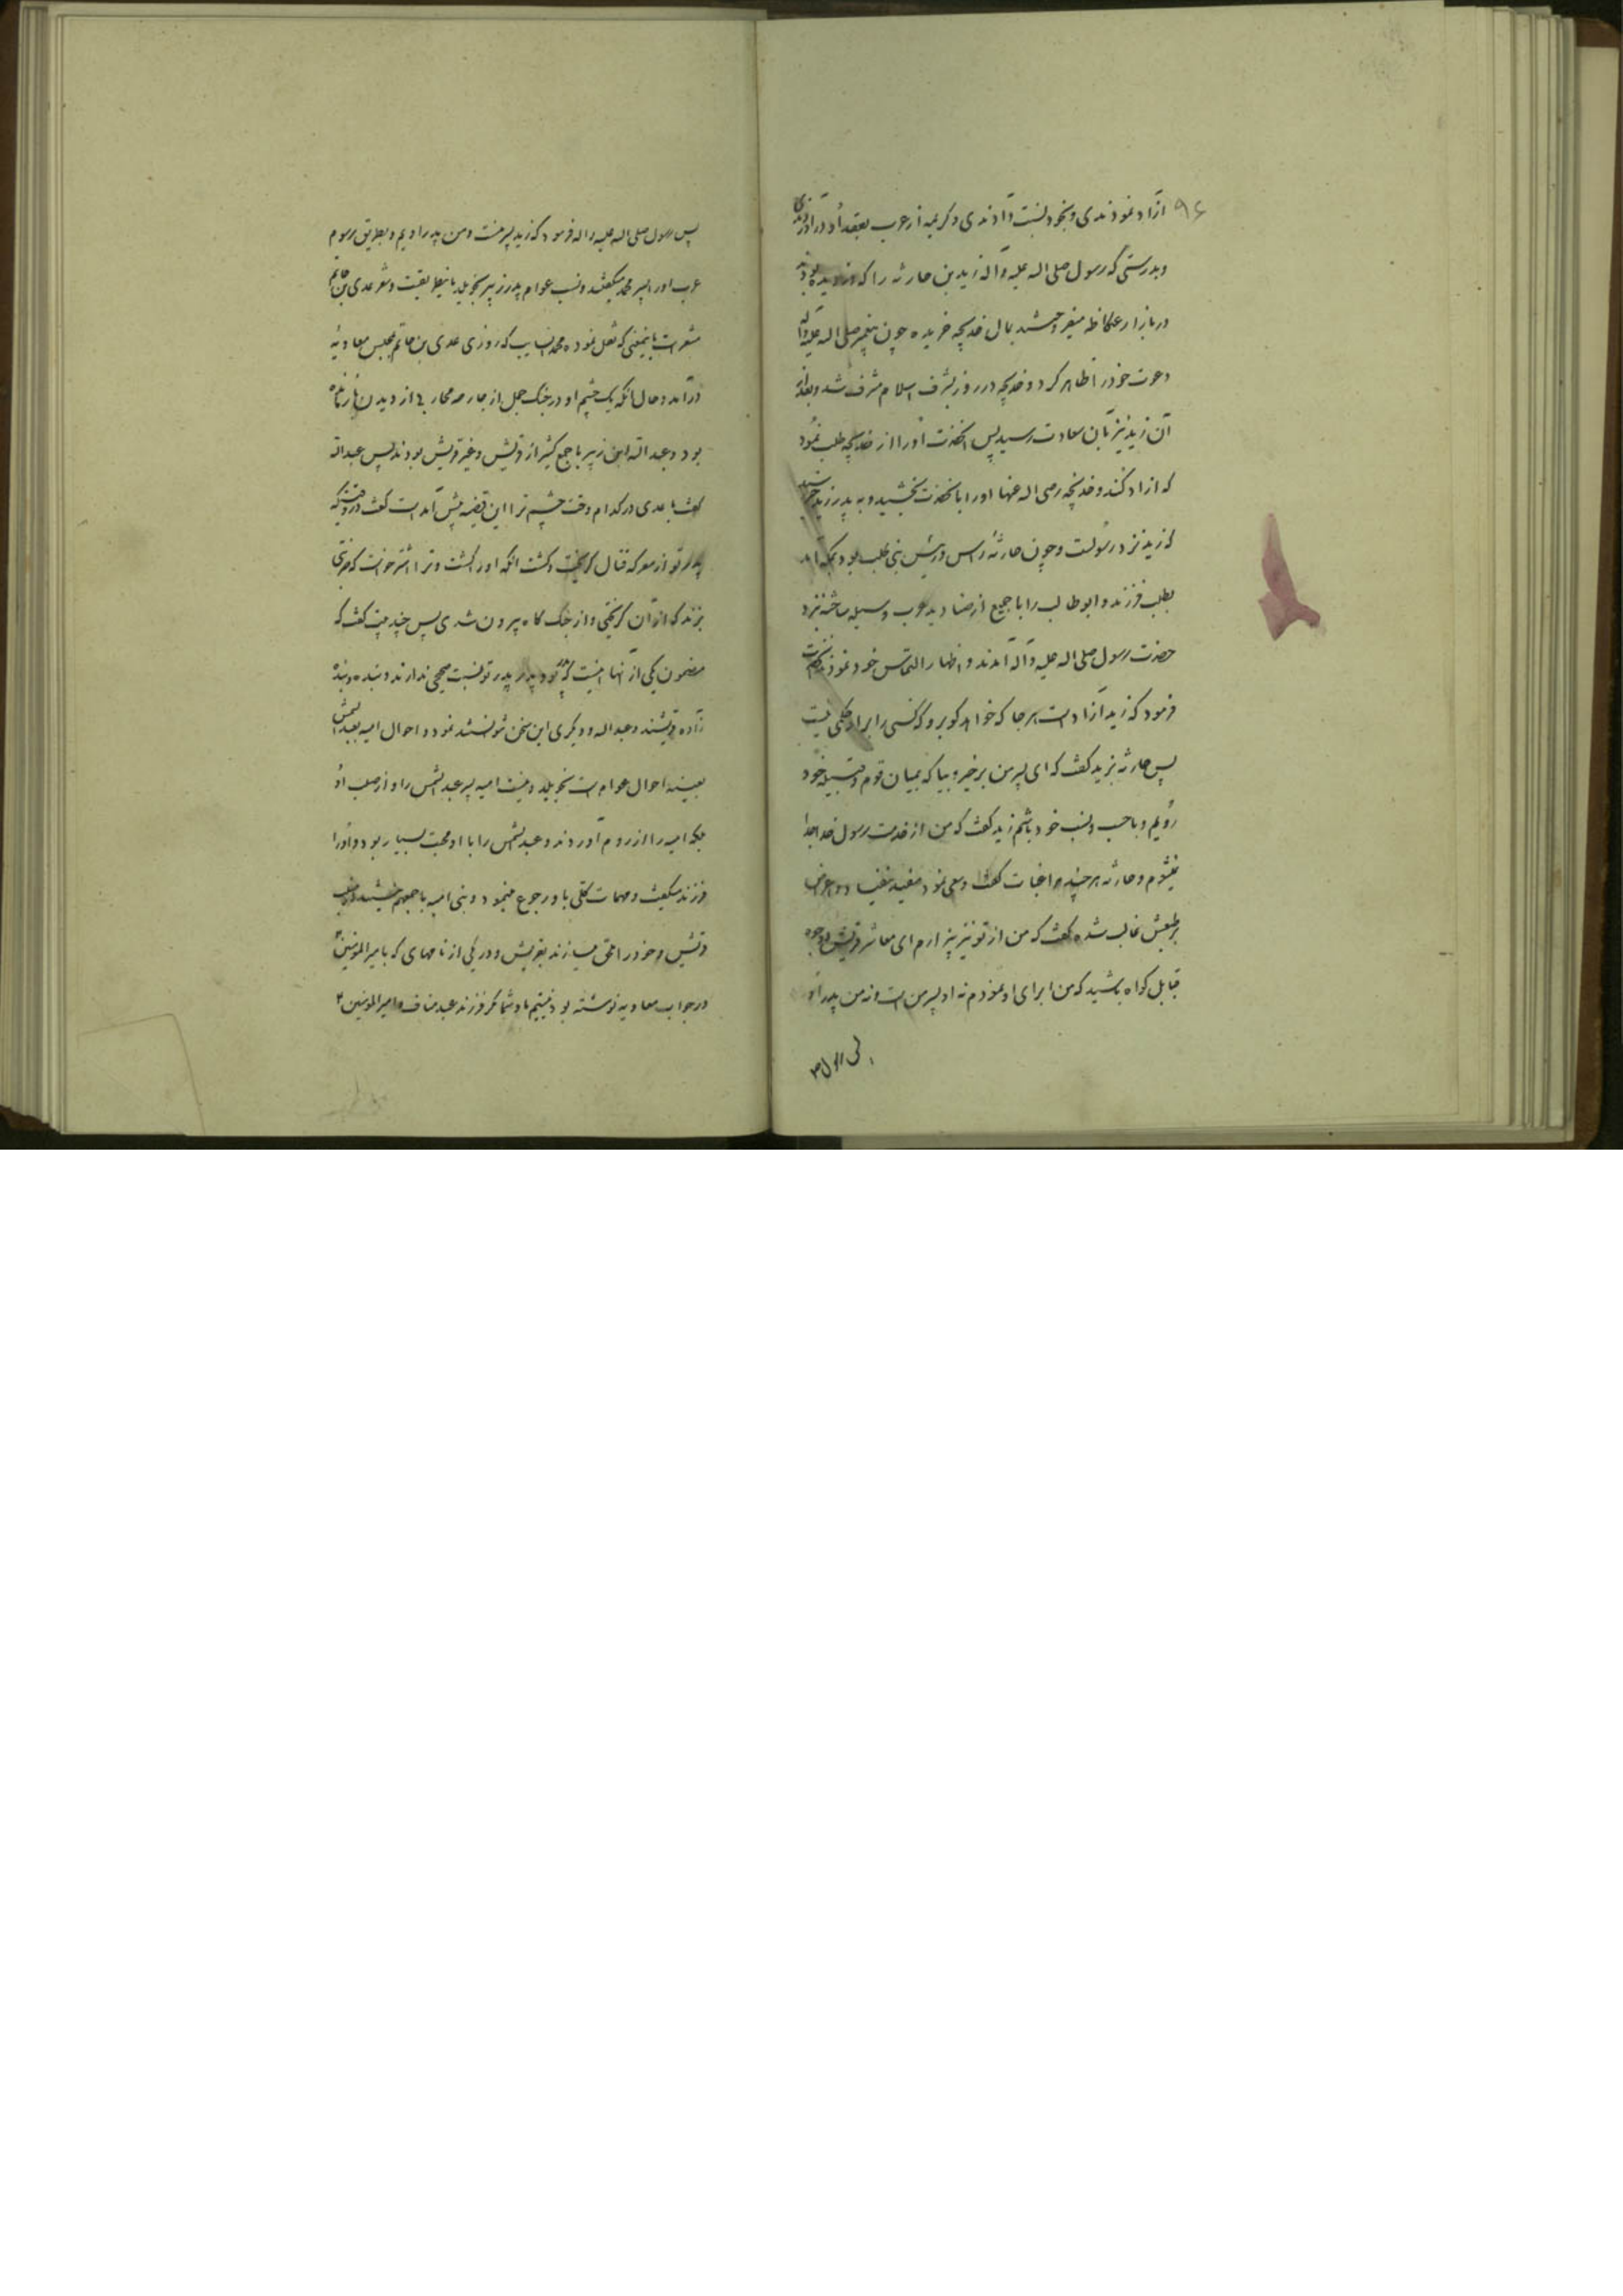 ۹۶ ازاد نمودندی و بخود نسبت دادندی و کریمه از عرب بعقد او در آوردندی
و بدرستی که رسول صلی اله علیه و آله زید بن حارثه را که دزدیده بودند
در بازار عکاظ میفروختند بمال خدیجه خریده چون پیغمبر صلی اله علیه و آله
دعوت خود را ظاهر کرد و خدیجه در روز بشرف اسلام مشرف شد و بعد از
آن زید نیز بآن سعادت رسید پس آنحضرت او را از خدیجه طلب نمود
که ازاد کند و خدیجه رضی اله عنها او را بآنحضرت بخشید و به پدر زید خبر رسید
که زید نزد رسولست و چون حارثه راس و رئیس بنی کلب بود بمکه آمد
بطلب فرزند و ابو طالب را با جمیع از صنادید عرب وسیله ساخته نزد
حضرت رسول صلی اله علیه و آله آمدند و اظهار التماس خود نمودند حضرت
فرمود که زید آزاد است هر جا که خواهد کو برو که کسی را برا و حکمی نیست
پس حارثه بزید کفت که ای پسر من برخیز و بیا که بمیان قوم و قبیله خود
رویم و با حسب و نسب خود باشیم زید کفت که من از خدمت رسول خدا جدا
نمیشوم و حارثه هر چند مراغبات کفت و سعی نمود مفید نیفتاد و اعراض
بر طبعش غالب شده کفت که من از تو نیز بیزارم ای معاشر قریش و وجوه
قبایل کواه باشید که من ابرای او نمودم نه او پسر من است و نه من پدر او
پس رسول
پس رسول صلی اله علیه و اله فرمود که زید پسر منست و من پدر اویم و بطریق رسوم
عرب او را پسر محمد میکفتند و نسب عوام پدر زبیر بخویلد باینطریقست و شعر عدی بن حاتم
مشعر است باینمعنی که نقل نموده محمد سایب که روزی عدی بن حاتم بمجلس معاویه
درآمد و حال انکه یک چشم او در جنک جمل از جارحه محاربه از دیدن بازمانده
بود و عبد اله ابن زبیر با جمع کثیر از قریش و غیر قریش بودند پس عبد اله
کفت یا عدی در کدام وقت چشم ترا این قضیه پیش آمد است کفت در وقتیکه
پدر تو از معرکه قتال کریخت و کشت انکه او را کشت و ترا اشتر خواست که ضربتی
بزند که از آن کریختی و از جنک کاه بیرون شدی پس چند بیت کفت که
مضمون یکی از آنها اینست که تو و پدر پدر تو نسبت صحیحی ندارند و بنده و بنده
زاده قریشند و عبد اله و دیکری این سخن شنو نشدند و احوال امیه بعبد الشمس
بعینه احوال عوام است بخویلد و نیست امیه پسر عبد الشمس را و از صلب او
بلکه امیه را از روم آوردند و عبد شمس را با او محبت بسیار بود و او را
فرزند میکفت و مهمات کلی باو رجوع مینمود و بنی امیه باجمعهم نیستند از نسب
قریش و خود را ملحق میسازند بقریش و در یکی از نامهای که بامیر المؤمنین
در جواب معاویه نوشته بود نیستیم ما و شما مکر فرزند عبد مناف و امیر المؤمنین